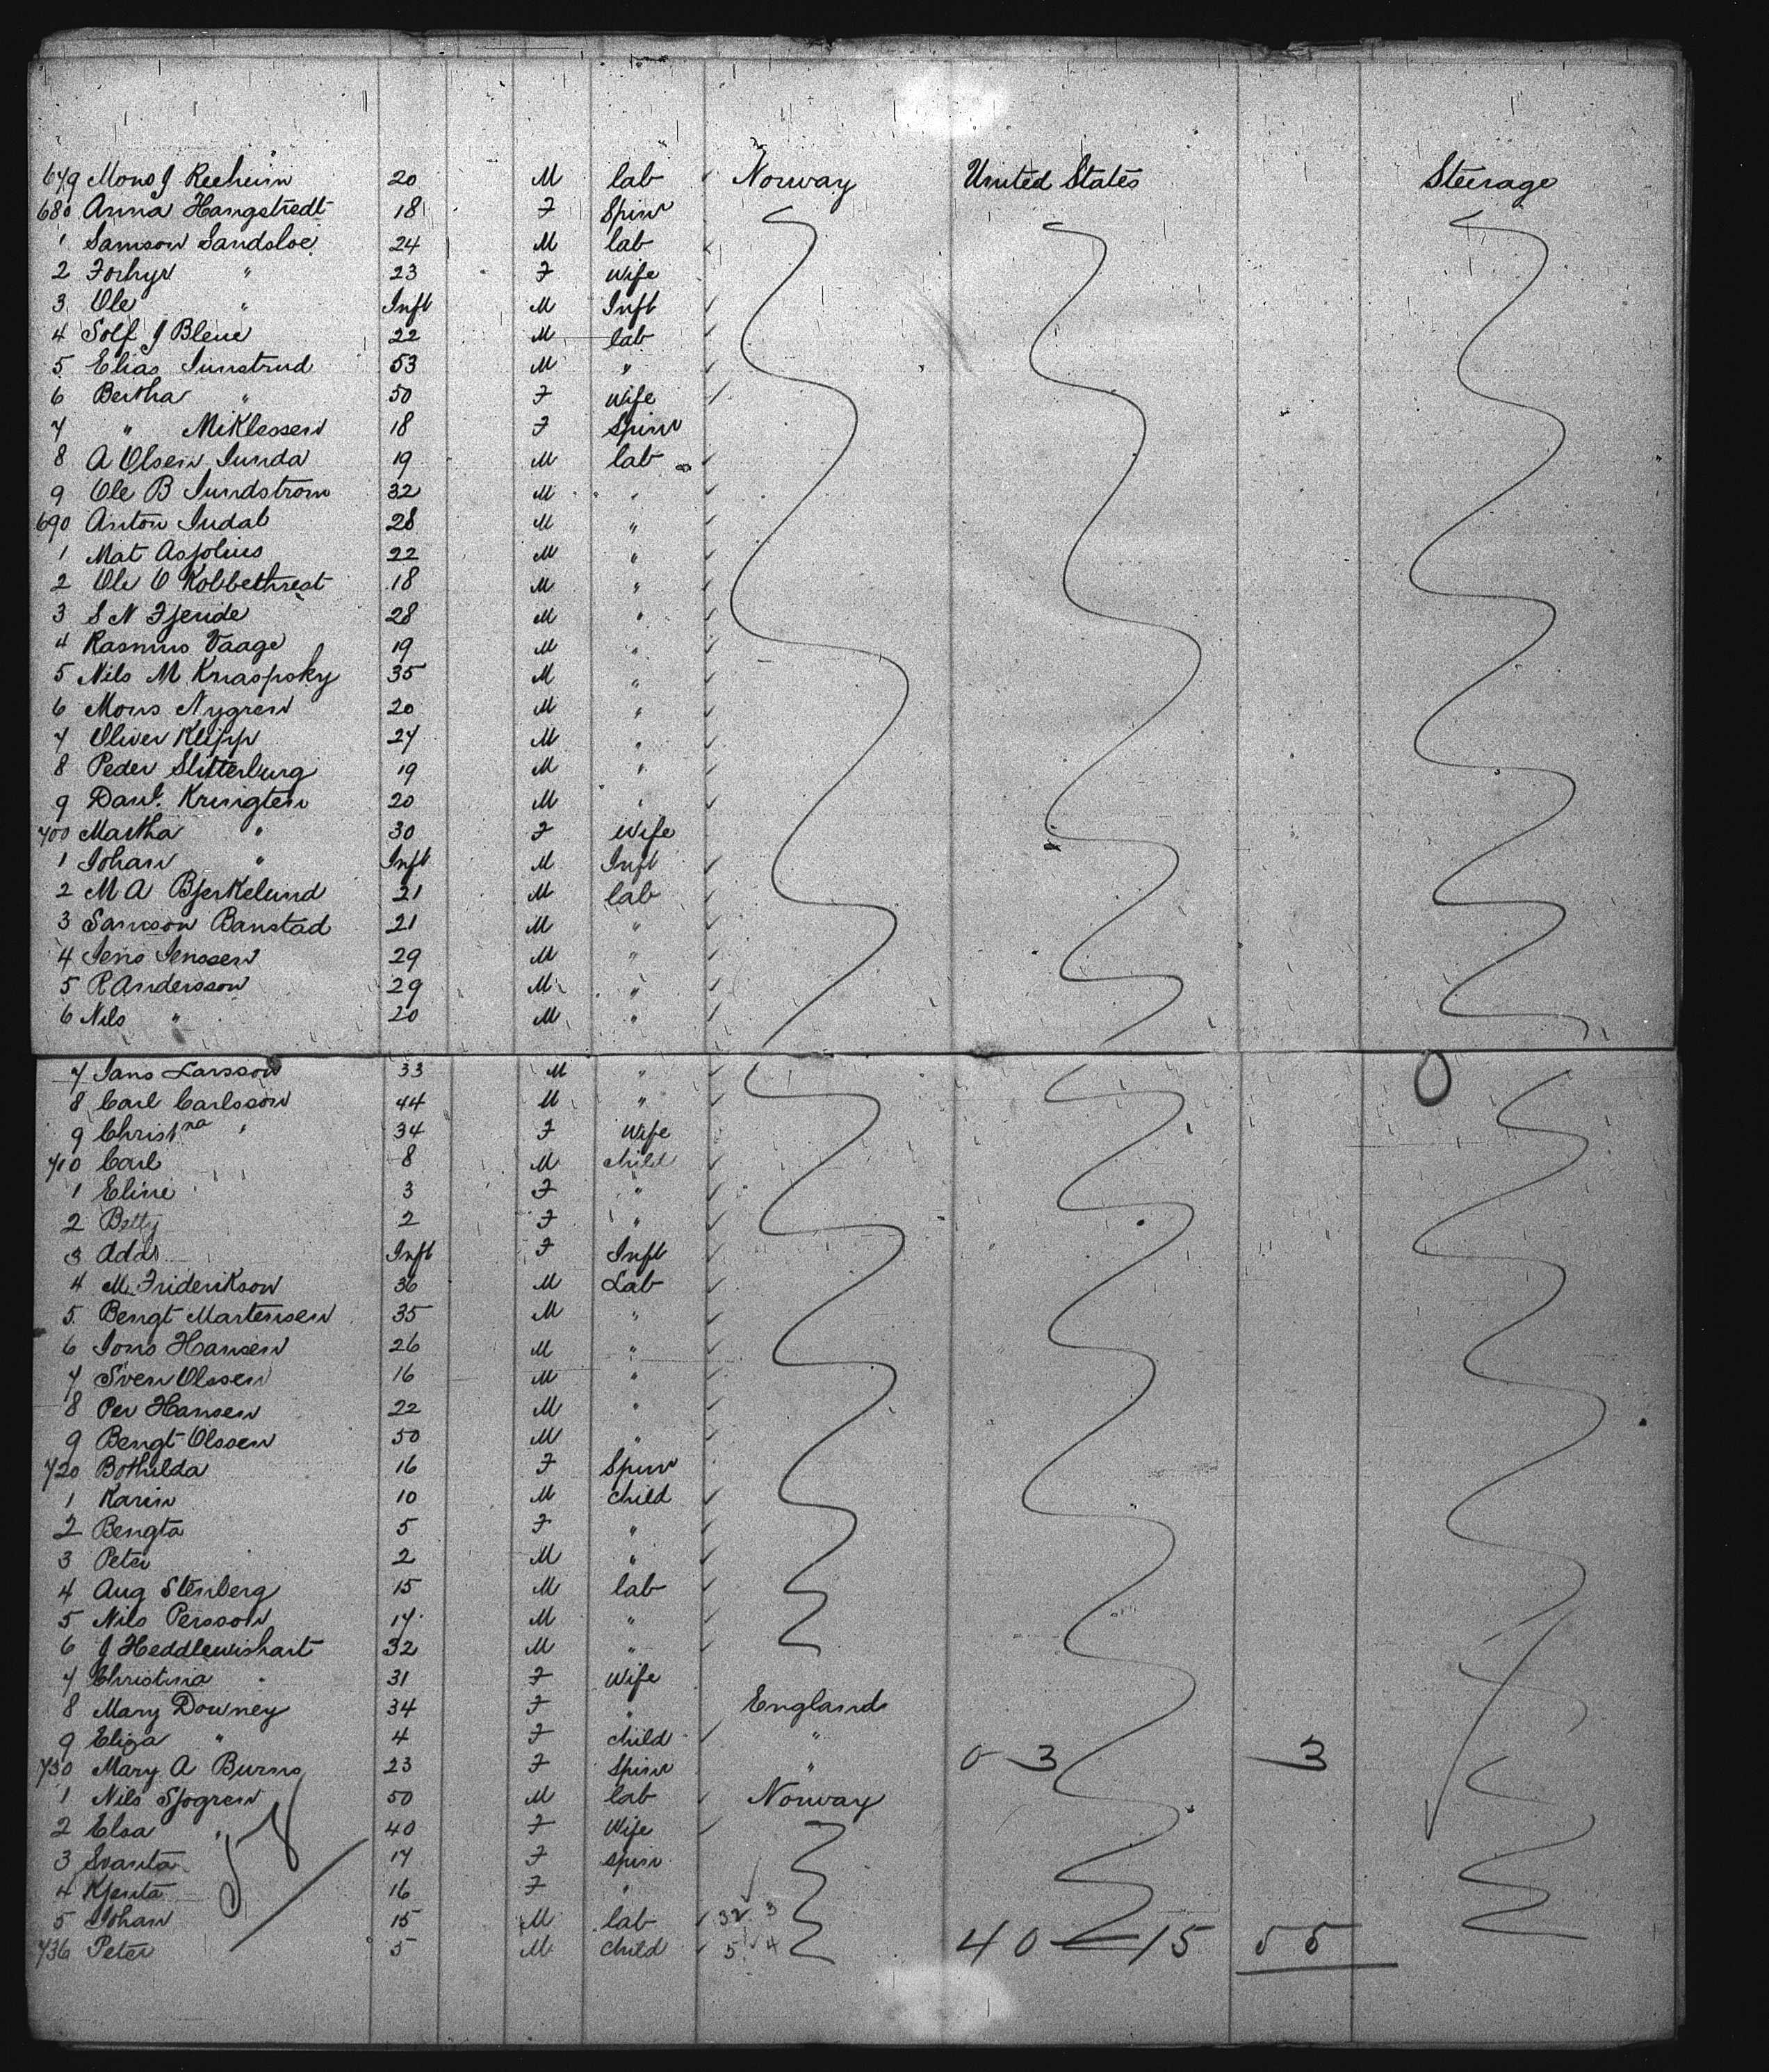 649 Mons J Reeheim 20 M lab Norway United States Steerage
680 Anna Hangstredt 18 F Spinr
1 Samson Sandsloe 24 M lab
2 Torhyr " 23 F wife
3 Ole " Inft M Inft
4 Solf J Blene 22 M lab
5 Elias Sunstrud 53 M "
6 Bertha " 50 F wife
7 " Miklessen 18 F Spinr
8 A Olsen Sunda 19 M lab
9 Ole B Sundstrom 32 M "
690 Anton Indal 28 M "
1 Mat Aspolius 22 M "
2 Ole O Kobbethrest 18 M "
3 S N Fjeride 28 M "
4 Rasmus Vaage 19 M "
5 Nils M Knaspsky 35 M "
6 Mons Nygren 20 M "
7 Oliver Klipp 24 M "
8 Peder Slitterburg 19 M "
9 Danl. Kringten 20 M "
700 Martha " 30 F Wife
1 Johan " Inft M Inft
2 M A Bjerkelund 21 M lab
3 Samson Banstad 21 M "
4 Jens Jenssen 29 M "
5 R Andersson 29 M "
6 Nils " 20 M "
7 Jans Larsson 33 M "
8 Carl Carlsson 44 M "
9 Christna " 34 F Wife
710 Carl 8 M child
1 Eline 3 F "
2 Betty 2 F "
3 Ada Inft F Inft
4 M Friderikson 36 M Lab
5 Bengt Martensen 35 M "
6 Jons Hansen 26 M "
7 Sven Olssen 16 M "
8 Per Hansen 22 M "
9 Bengt Olssen 50 M "
720 Bothilda 16 F Spinr
1 Karin 10 M child
2 Bengta 5 F "
3 Peter 2 M "
4 Aug Stenberg 15 M lab
5 Nils Persson 17 M "
6 J Heddlewishart 32 M "
7 Christina " 31 F Wife
8 Mary Downey 34 F " England
9 Eliza " 4 F child "
730 Mary A Burns 23 F Spinr " 0-3 3
1 Nils Sjogren 50 M lab Norway
2 Elsa " 40 F Wife
3 Svanta 17 F spin
4 Kjenta 16 F "
5 Johan 15 M lab 32 3
736 Peter 5 M child 5 4 40-15 55